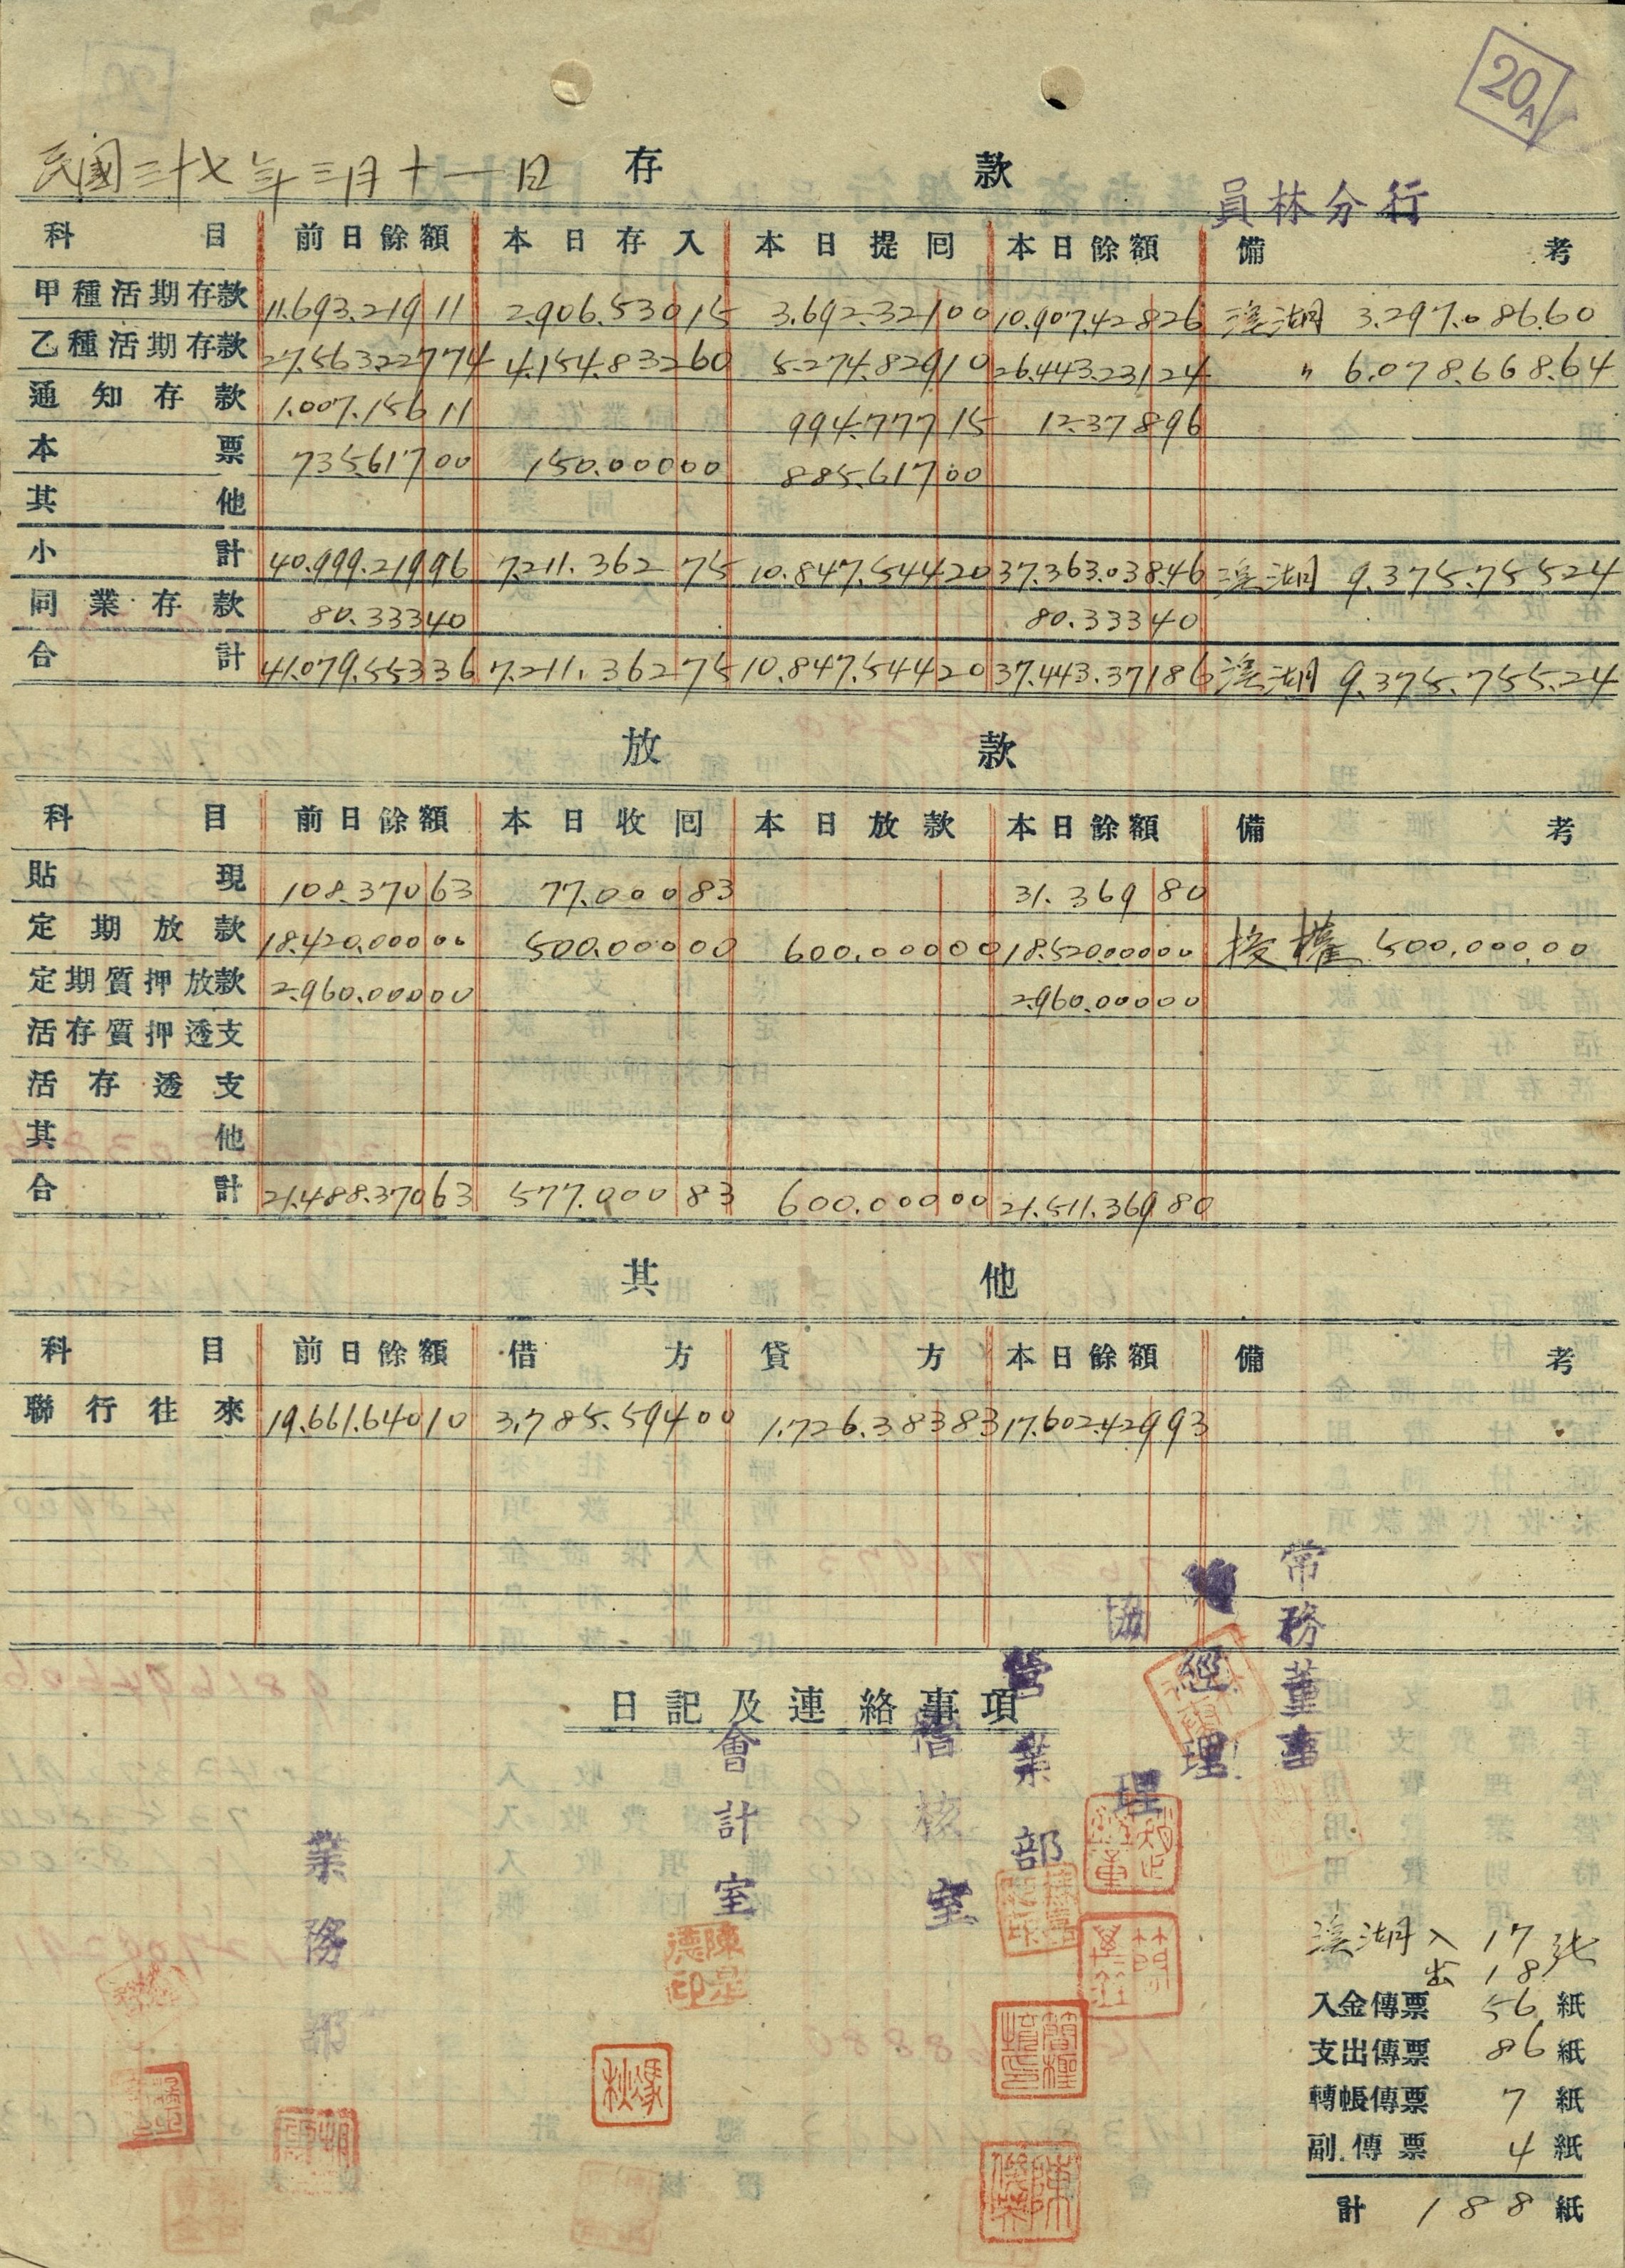 20A
民國三十七年三月十一日 存款 員林分行
科目 前日餘額 本日存入 本日提回 本日餘額 備考
甲種活期存款 11.693.219 11 2.906.530 15 3.692.321 00 10.907.428 26 溪湖 3.297.086.60
乙種活期存款 27.563.227 74 4.154.832 60 5.274.829 10 26.443.231 24 〃 6.078.668.64
通知存款 1.007.156 11 994.777 15 12.378 96
本票 735.617 00 150.000 00 885.617 00
其他
小計 40.999.219 96 7.211.362 75 10.847.544 20 37.363.038.46 溪湖 9.375.755 24
同業存款 80.333 40 80.333 40
合計 41.079.553 36 7.211.362 75 10.847.544 20 37.443.371 86 溪湖 9.375.755.24
放款
科目 前日餘額 本日收回 本日放款 本日餘額 備考
貼現 108.370 63 77.000 83 31.369 80
定期放款 18.420.000 00 500.000 00 600.000 00 18.520.000 00 授權 500.000.00
定期質押放款 2.960.000 00 2.960.000 00
活存質押透支
活存透支
其他
合計 21.488.370 63 577.000 83 600.000 00 21.511.369 80
其他
科目 前日餘額 借方 貸方 本日餘額 備考
聯行往來 19.661.640 10 3.785.594 00 1.726.383 83 17.602.429 93
日記及連絡事項
常務董事
總經理
協理
營業部
稽核室
會計室
業務部
陳是德印
馮秋
溪湖 入 17 張
出 18
入金傳票 56 紙
支出傳票 86 紙
轉帳傳票 7 紙
副傳票 4 紙
計 188 紙